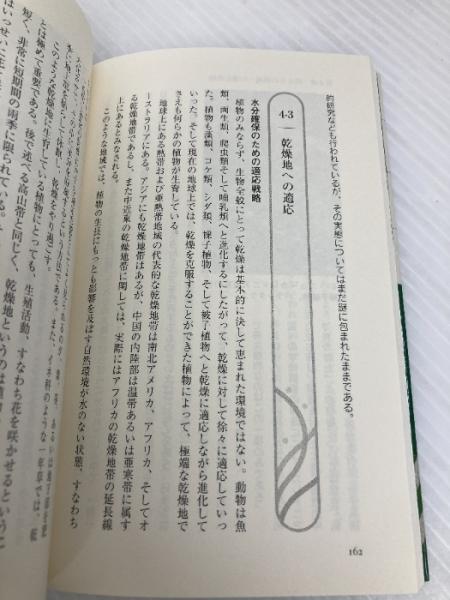 的研究なども行われているが、その実態についてはまだ謎に包まれたままである。
4-3 乾燥地への適応
水分確保のための適応戦略
植物のみならず、生物全般にとって乾燥は基本的に決して恵まれた環境ではない。動物は魚
類、両生類、爬虫類そして哺乳類へと進化するにしたがって、乾燥に対して徐々に適応していっ
た。植物も藻類、コケ類、シダ類、裸子植物、そして被子植物へと乾燥に適応しながら進化して
いった。そして現在の地球上では、乾燥を克服することができた植物によって、極端な乾燥地で
さえも何らかの植物が生育している。
地球上における熱帯および亜熱帯地域の代表的な乾燥地帯は南北アメリカ、アフリカ、そしてオ
ーストラリアにある。アジアにも乾燥地帯はあるが、中国の内陸部は温帯あるいは亜寒帯に属す
る乾燥地帯であるし、また中近東の乾燥地帯に関しては、実際にはアフリカの乾燥地帯の延長線
上にあるとみなされる。
このような地域では、植物の生長にもっとも影響を及ぼす自然環境が水のない状態、すなわち
乾燥をやり過ごす。
このような乾燥地に生育している植物にとっても、生殖活動、すなわち花を咲かせるというこ
とは極めて重要である。後で述べる高山帯と同じく、乾燥地というのは
短く、非常に短期間の雨季に限られている。
162